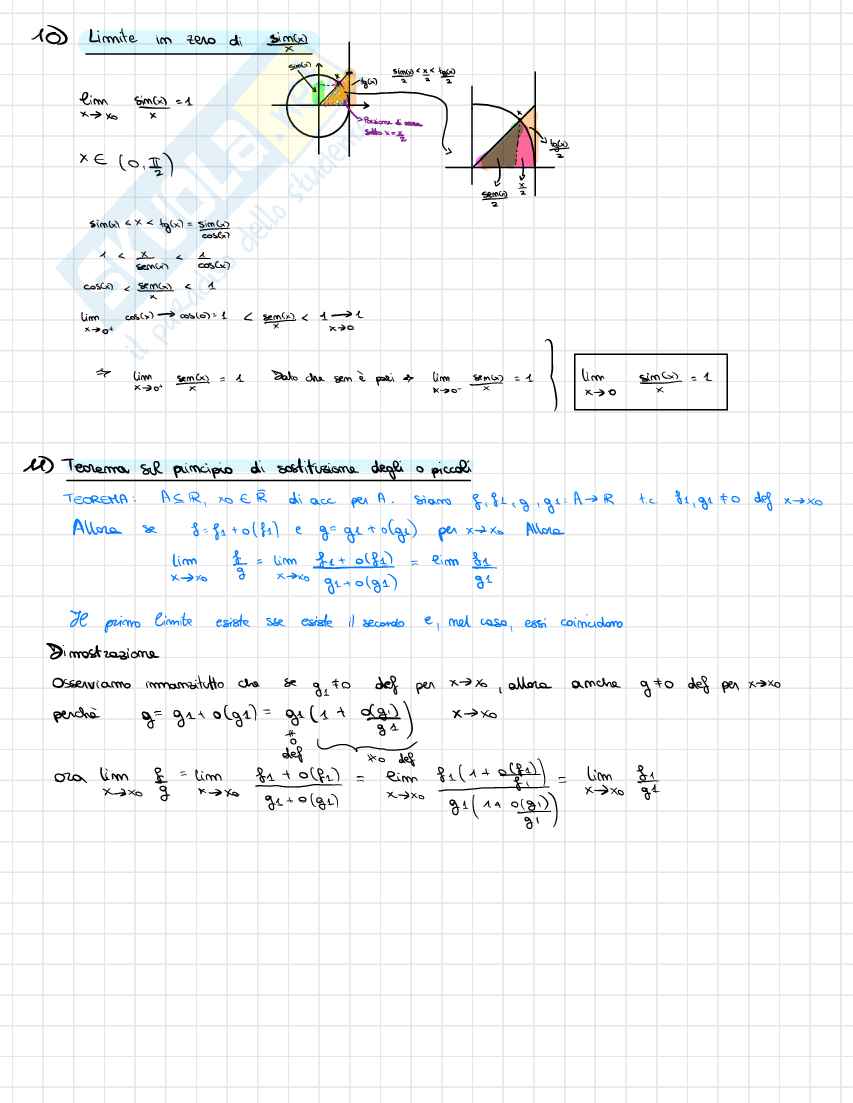 10) Limite in zero di sin(x)/x
sin(x)
x
tg(x)
sin(x)/2 < x/2 < tg(x)/2
lim x→x₀ sin(x)/x = 1
Porzione di
sotto x = x/2
x
tg(x)/2
x ∈ (0, π/2)
sen(x)/2
x/2
sin(x) < x < tg(x) = sin(x)/cos(x)
1 < x/sen(x) < 1/cos(x)
cos(x) < sen(x)/x < 1
lim x→0⁺ cos(x) → cos(0) = 1 < sen(x)/x < 1 → 1 x→0
⇒ lim x→0⁺ sen(x)/x = 1 Dato che sen è pari ⇒ lim x→0⁻ sen(x)/x = 1 } lim x→0 sin(x)/x = 1
11) Teorema sul principio di sostituzione degli o piccoli
TEOREMA: A⊆ℝ, x₀∈ℝ̄ di acc per A. Siano f, f1, g, g1: A→ℝ t.c. f1, g1 ≠ 0 def x→x₀
Allora se f = f1 + o(f1) e g = g1 + o(g1) per x→x₀ Allora
lim x→x₀ f/g = lim x→x₀ (f1 + o(f1))/(g1 + o(g1)) = lim f1/g1
Il primo limite esiste sse esiste il secondo e, nel caso, essi coincidono
Dimostrazione
Osserviamo innanzitutto che se g1 ≠ 0 def per x→x₀, allora anche g ≠ 0 def per x→x₀
perché g = g1 + o(g1) = g1(1 + o(g1)/g1) x→x₀
≠ 0 def
≠0 def
ora lim x→x₀ f/g = lim x→x₀ (f1 + o(f1))/(g1 + o(g1)) = lim x→x₀ f1(1 + o(f1)/f1)/g1(1 + o(g1)/g1) = lim x→x₀ f1/g1